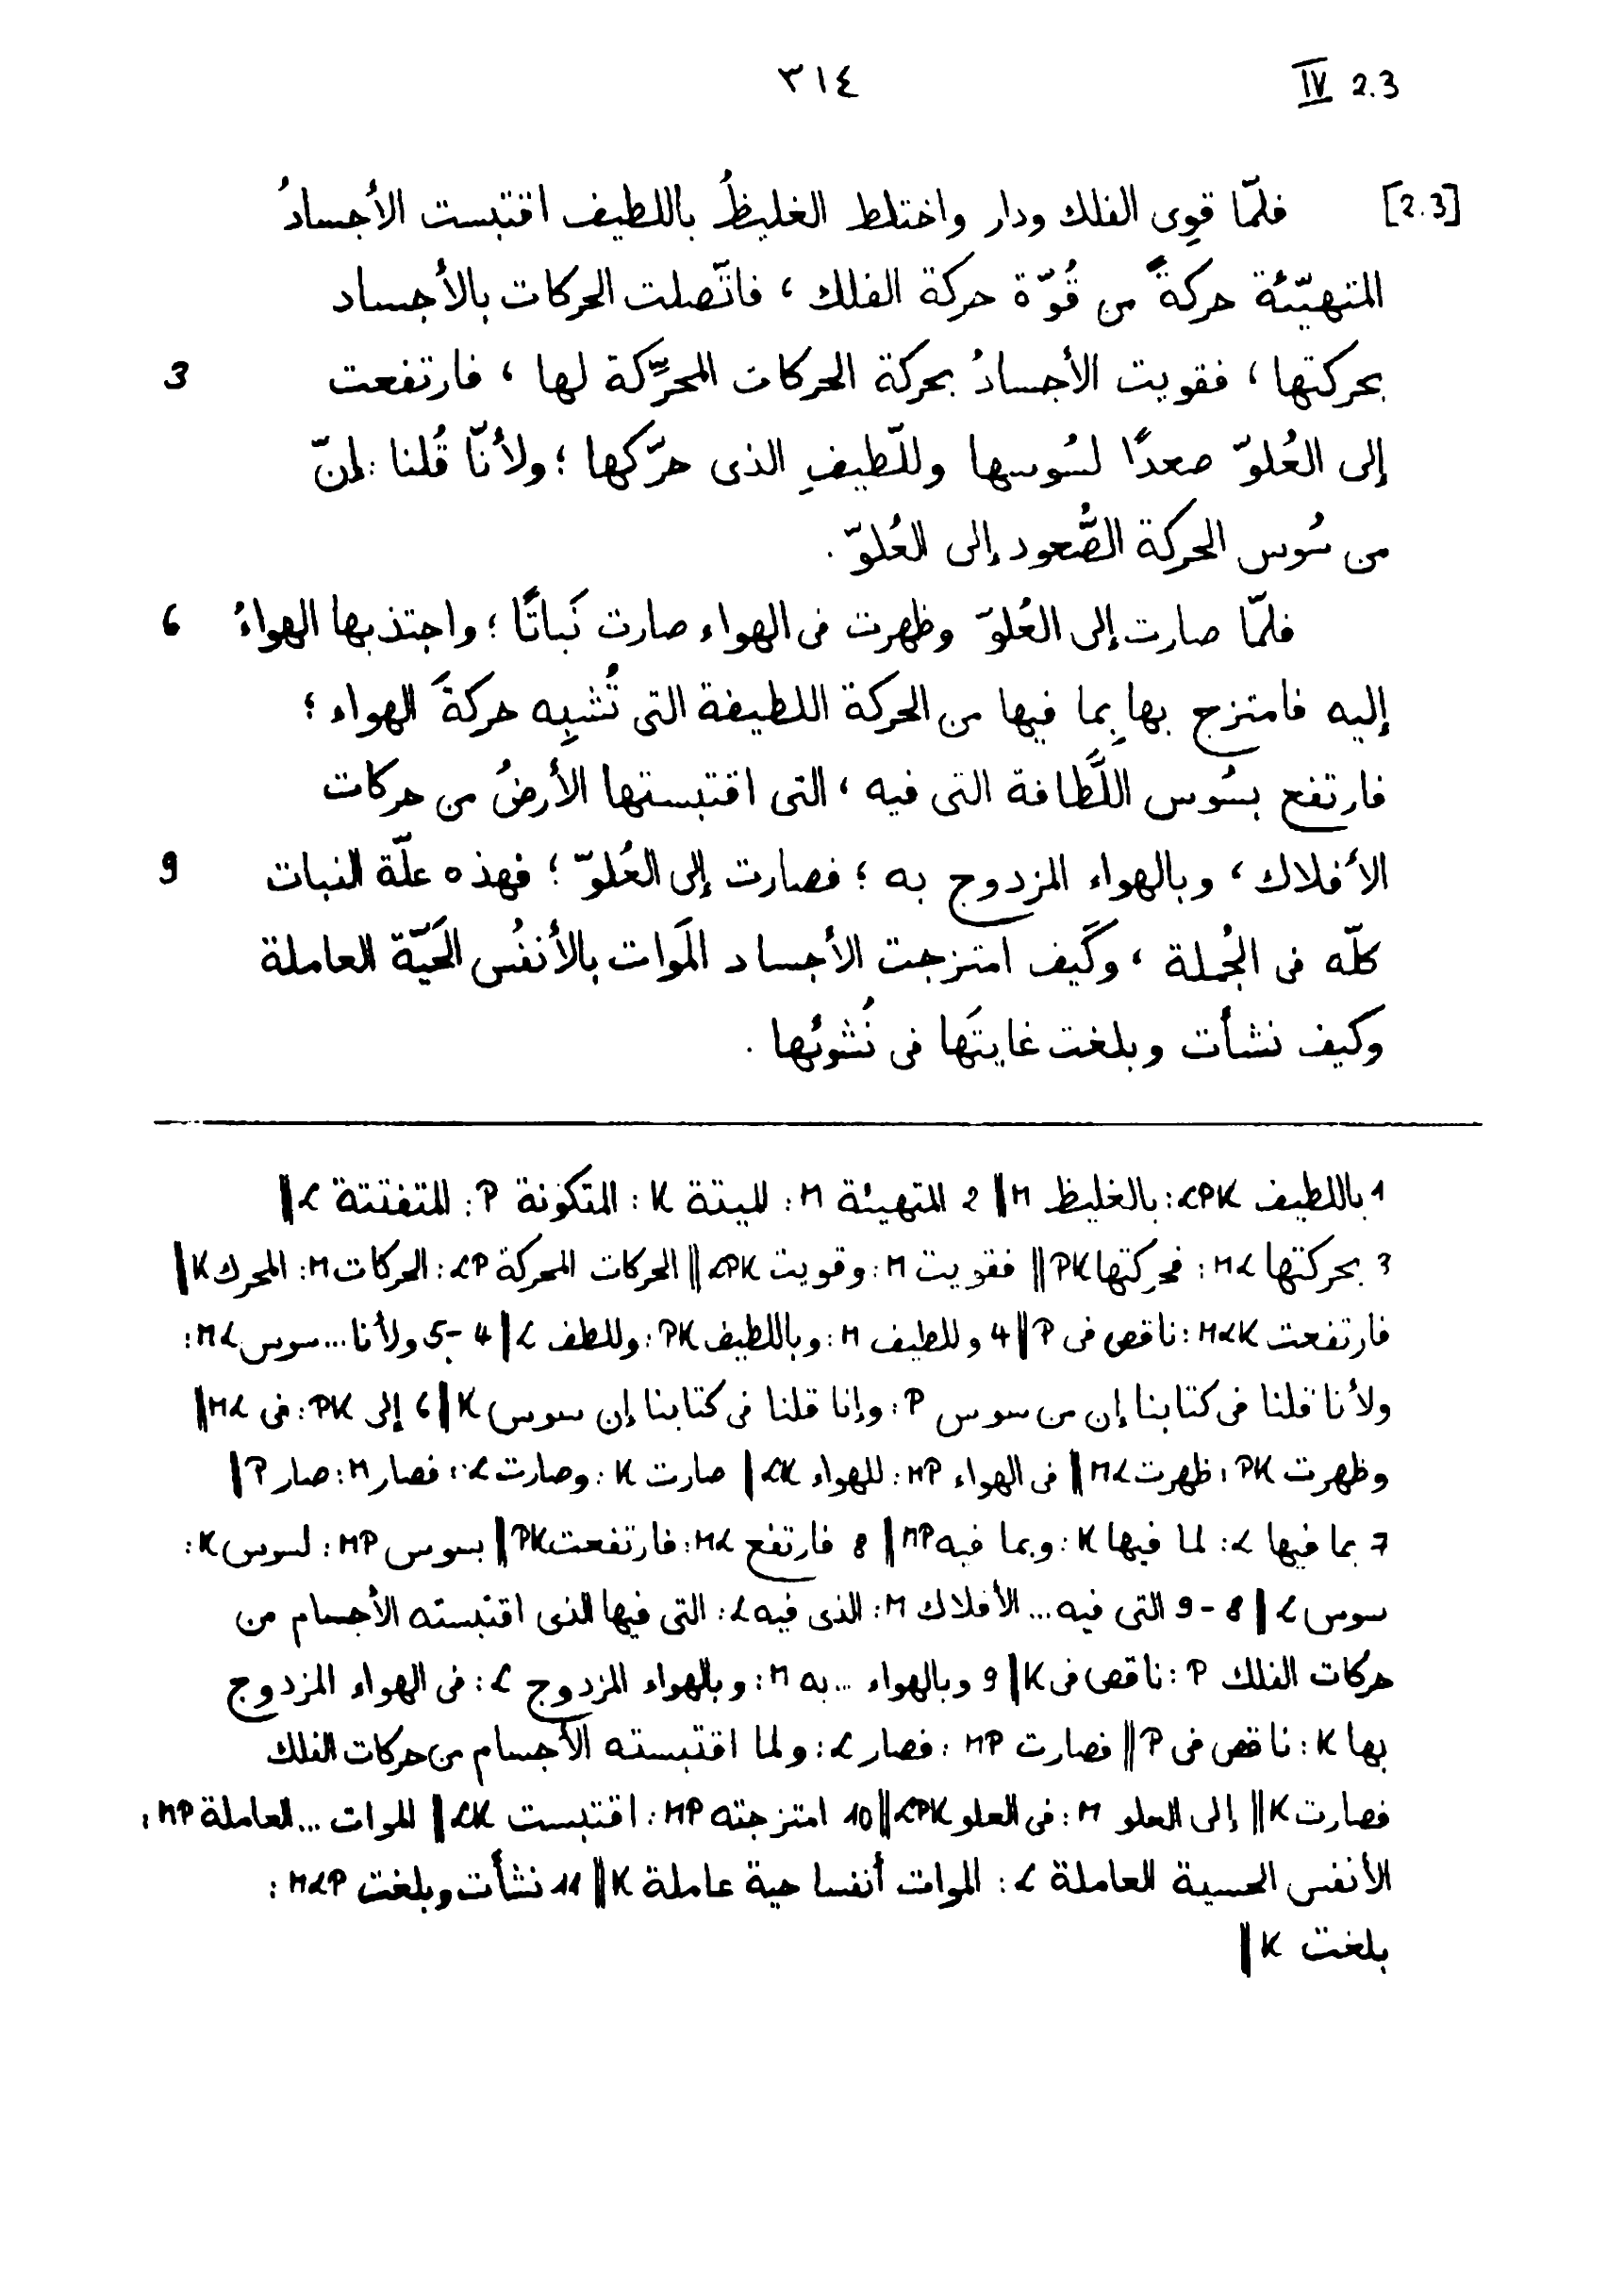 ٣١٤ IV 2.3
[2.3] فلمّا قوِى الفلك ودار واختلط الغليظُ باللطيف اقتبست الأجسادُ
المتهيّئة حركةً من قُوّة حركة الفلك ، فاتّصلت الحركات بالأجساد
بحركتها ، فقويت الأجسادُ بحركة الحركات المحرِّكة لها ، فارتفعت 3
إلى العُلوّ صعدًا لسُوسها وللّطيفِ الذى حرّكها ؛ ولأنّا قُلنا : إنّ
من سُوس الحركة الصُّعود إلى العُلوّ .
فلمّا صارت إلى العُلوّ وظهرت فى الهواء صارت نَباتًا ؛ واجتذبها الهواءُ 6
إليه فامتزج بها بِما فيها من الحركة اللطيفة التى تُشبِه حركةَ الهواء ؛
فارتفع بسُوس اللَّطافة التى فيه ، التى اقتبستها الأرضُ من حركات
الأفلاك ، وبالهواء المزدوج به ؛ فصارت إلى العُلوّ ؛ فهذه علّة النبات 9
كلّه فى الجُملة ، وكَيف امتزجت الأجساد المَوات بالأنفُس الحَيّة العاملة
وكيف نشأت وبلغت غايتَها فى نُشوئها .
1 باللطيف LPK : بالغليظ M || 2 المتهيئة M : الميتة K : المتكونة P : المتفتتة L ||
3 بحركتها ML : فحركتها PK || فقويت M : وقويت LPK || الحركات المحركة LP : الحركات M : المحرك K ||
فارتفعت MLK : ناقص فى P || 4 وللطيف M : وباللطيف PK : وللطف L || 4-5 ولأنا ... سوس ML :
ولأنا قلنا فى كتابنا إن من سوس P : وإنا قلنا فى كتابنا إن سوس K || 6 إلى PK : فى ML ||
وظهرت PK : ظهرت ML || فى الهواء MP : للهواء LK || صارت K : وصارت L : فصار M : صار P ||
7 بما فيها L : لما فيها K : وبما فيه MP || 8 فارتفع ML : فارتفعت PK || بسوس MP : لسوس K :
سوس L || 8-9 التى فيه ... الأفلاك M : الذى فيه L : التى فيها الذى اقتبسته الأجسام من
حركات الفلك P : ناقص فى K || 9 وبالهواء ... به M : وبالهواء المزدوج L : فى الهواء المزدوج
بها K : ناقص فى P || فصارت MP : فصار L : ولما اقتبسته الأجسام من حركات الفلك
فصارت K || إلى العلو M : فى العلو LPK || 10 امتزجته MP : اقتبست LK || الموات ... العاملة MP :
الأنفس الحسية العاملة L : الموات أنفسا حية عاملة K || 11 نشأت وبلغت MLP :
بلغت K ||